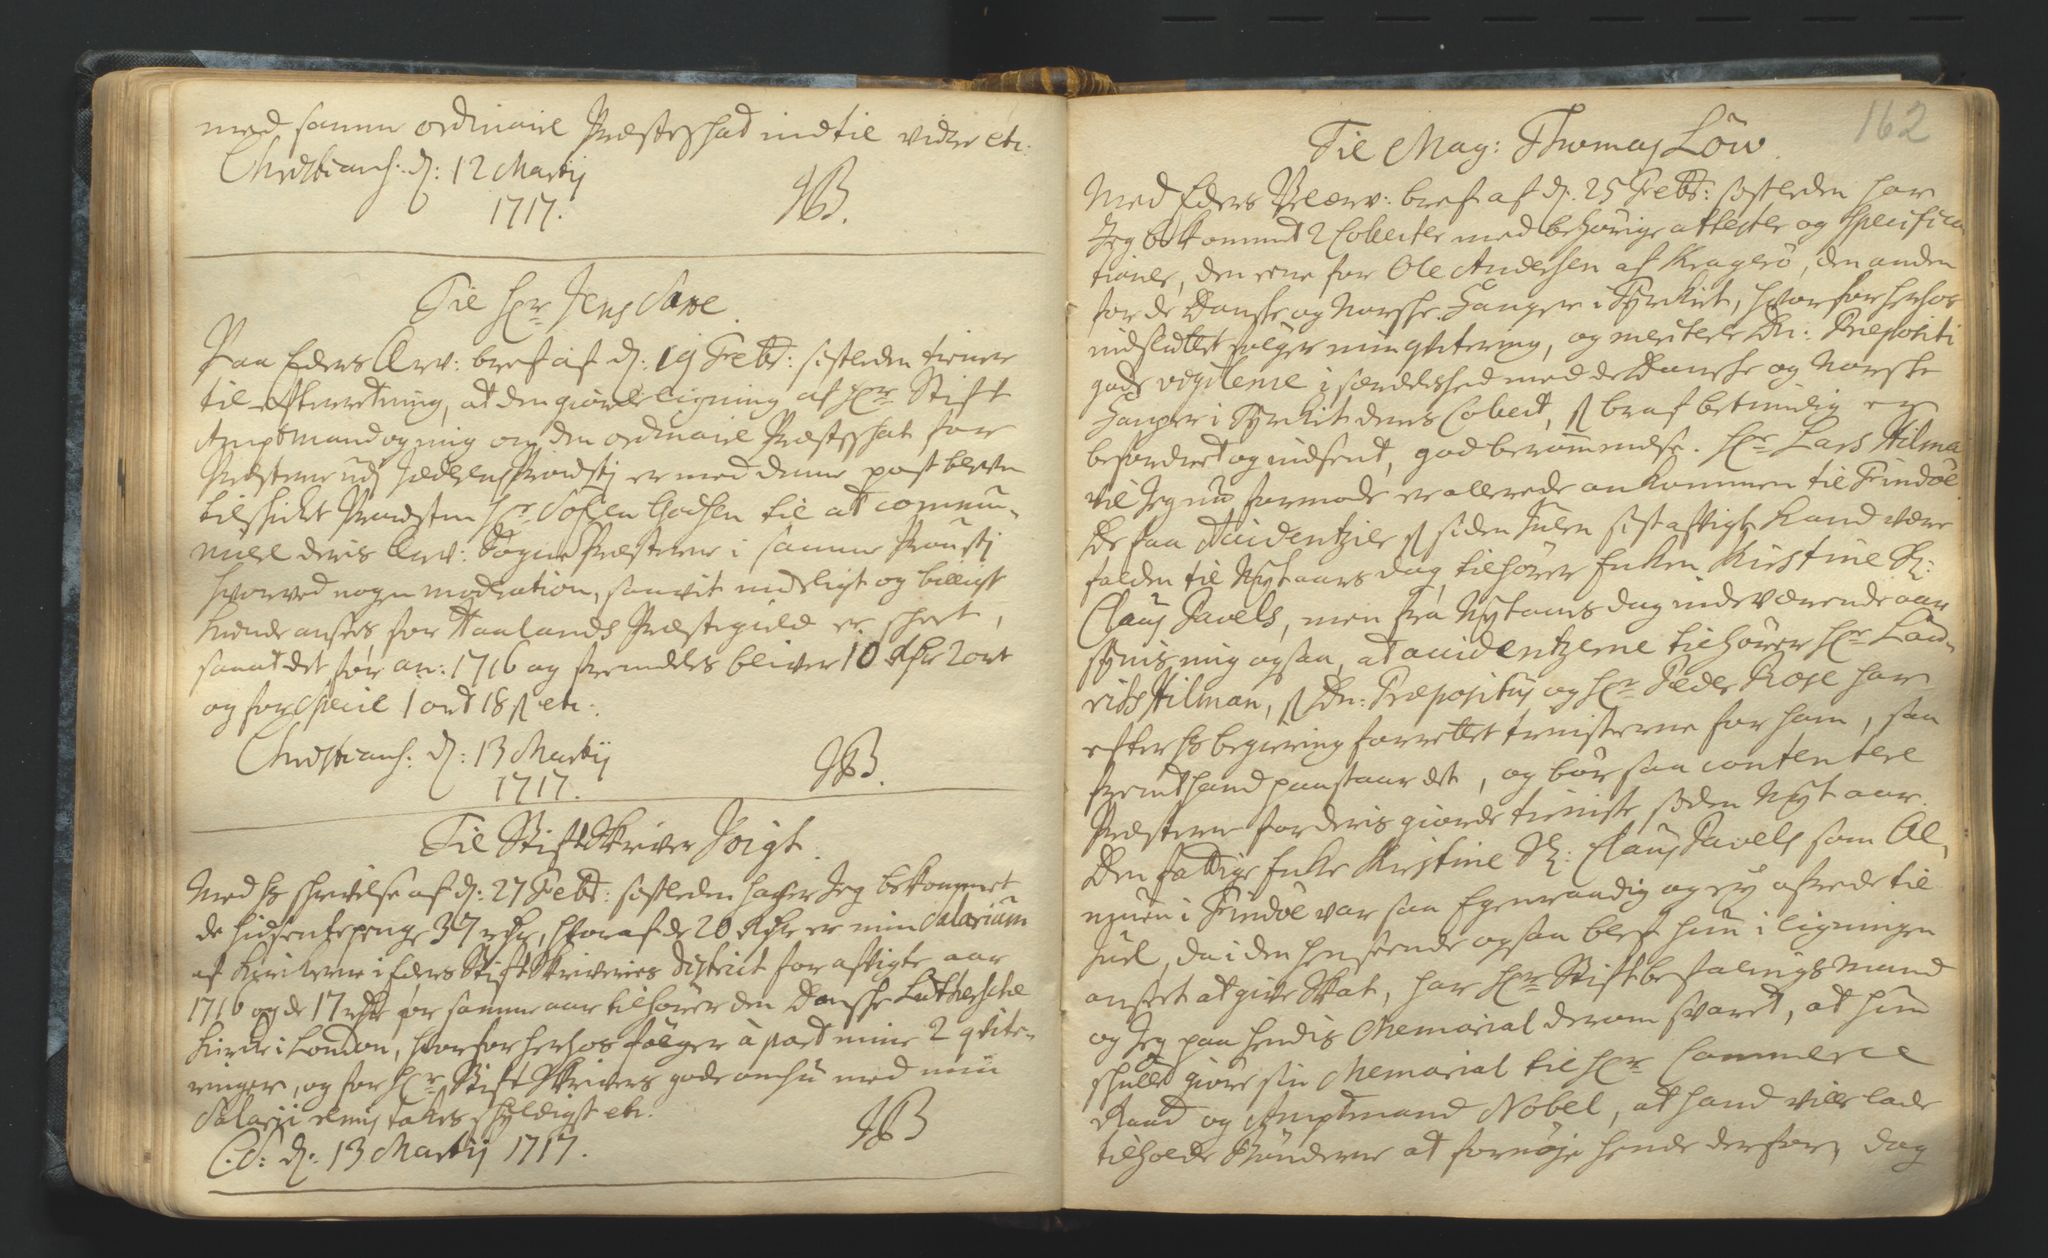 med samme ordinaire Præsteskat indtil videre etc.
Christians. d: 12 Martij
1717.
JB.
Til Hr Jens Saxe
Paa Eders Ærv: bref af d: 19 Febr: sistleden tiener
til efterretning, at den giorde ligning af Hr Stift
Amptmand og mig om den ordinaire Præsteskat for
Præsterne udj Jædderens Prousti er med denne post bleven
tilskicket Provsten Hr Søfren Godtzen til at commu-
nicere deris Ærv: Sogne Præsterne i samme Prousti
hvorved nogen moderation, saavit med ligt og billigt
kunde ansees for Haalands Præstegield er skeet,
saa at det for an: 1716 og fremdeles bliver 10 Rdlr 2 ort
og for specie 1 ort 18 s etc.
Christians. d: 13 Martij
1717.
JB.
Til Stift Skriver Voigt.
Med hs skrivelse af d: 27 Febr: sistleden hafver Jeg bekommet
de hidsente penge 37 rdlr, hvoraf de 20 Rdlr er min Salarium
af Kirkerne i Eders Stift Skriveries District for afvigte aar
1716 og de 17 rdlr for samme aar tilhører den Danske Lutherske
Kirke i London, hvorfor herhos følger à part mine 2 qvite-
ringer, og for Hr Stift Skrivers gode omhu med min
Salarij remis takes skyldigst etc.
C.S: d: 13 Martij 1717.
JB
162
Til Mag: Thomas Löw.
Med Eders Velærv: bref af d: 25 Febr: sistleden har
Jeg bekommet 2 Collecter med behörige attester og Specifica
tioner, den eene for Ole Andersen af Kragerö, den anden
for de Danske og Norske Fanger i Tyrkiet, hvorfor herhos
indsluttet følger min qvitering, og meriterer Dn: Præpositi
gode vigilence i særdelished med de Danske og Norske
Fanger i Tyrkiet deres Collect, som saa betimelig er
befordret og indsent, god berømmelse. Hr Lars Hilman
vil Jeg nu formode er allerede ankommen til Findöe.
De faa Accidentzier som siden Julen sist afvigt kand være
falden til Nyt aars dag, tilhører Enken Kirstine Sl:
Claus Pavels, men fra Nytaars dag indeværende aar
synis mig ogsaa, at accidentzerne tilhører Hr Lau-
ridtz Hilman, som Dn: Præpositus og Hr Peder Rose har
efter hs begiering forrettet tienisterne for ham, saa
fremt hand paastaar det, og bör saa contentere
Præsterne for deris giorde tieniste siden Nyt aar.
Den fattige Enke Kirstine Sl: Claus Pavels som Al-
muen i Findöe var saa Egenraadig og ey afrede til
Juel, da i den henseende ogsaa blef hun i ligningen
anseet at give Skat, har Hr Stiftbefalings Mand
og Jeg paa hendis Memorial derom svaret, at hun
skulle giøre sin Memorial til Hr Commerce
Raad og Amptmand Nobel, at hand ville lade
tilholde Bönderne at fornöje hende derfor, dog